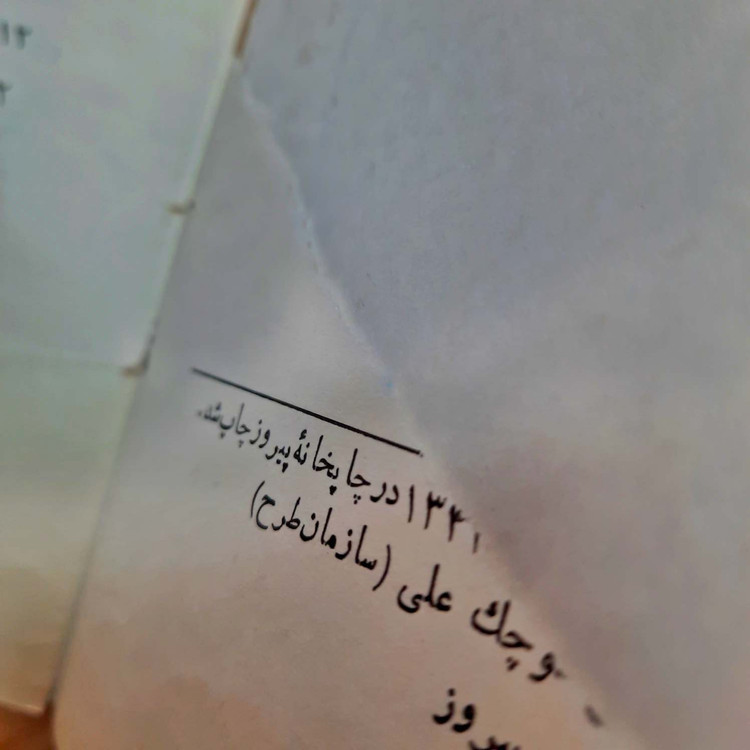 ۱۳۴۱ در چاپخانهٔ پیروز چاپ شد.
وچك علی (سازمان طرح)
پیروز